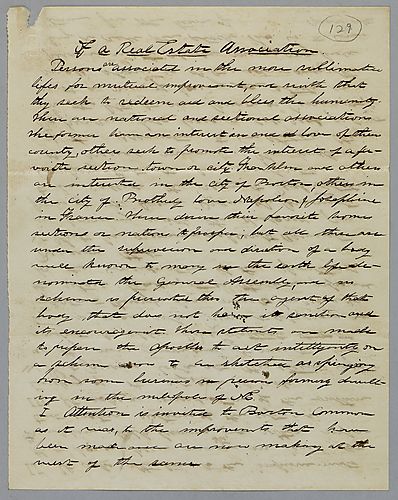 129
Of a Real Estate Association.
Persons are associated in the more sublimated
lifes, for mutual improvement, and with that
they seek to redeem aid and bless the humanity.
There are national and sectional associations
The former have an interest in and a love of their
country, others seek to promote the interest of a fa-
vorite section town or city. Franklin and others
are interested in the city of Boston, others in
the city of Brotherly love Napoleon & Josephine
in France. These desire their favorite homes
sections or nation to prosper; but all these are
under the supervision and direction of a body
well known to many in the earth life de-
nominated the General Assembly, and no
scheme is presented thro the agent of that
body, that does not have its sanction and
its encouragement. These statements are made
to prepare the Apostles to act intelligently on
a scheme soon to be sketched as springing
from some business persons formerly dwell-
ing in the metropolis of N.E.
1 Attention is invited to Boston Common
as it was, to the improvements that have
been made and are now making at the
west of the same